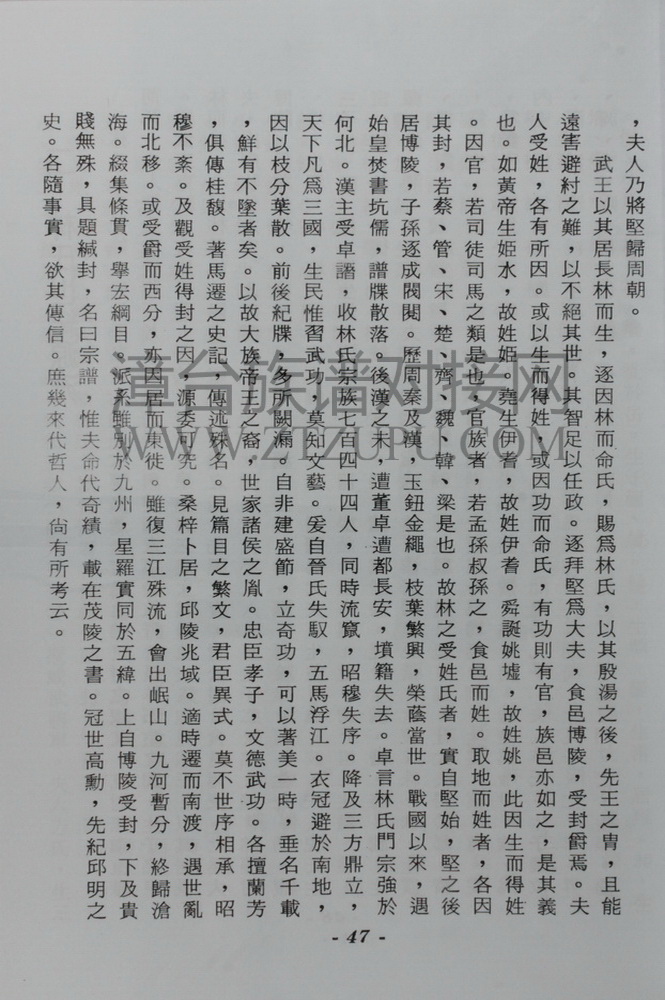 ，夫人乃將堅歸周朝。
武王以其居長林而生，逐因林而命氏，賜爲林氏，以其殷湯之後，先王之胄，且能
遠害避紂之難，以不絕其世。其智足以任政。逐拜堅爲大夫，食邑博陵，受封爵焉。夫
人受姓，各有所因。或以生而得姓，或因功而命氏，有功則有官，族邑亦如之，是其義
也。如黃帝生姬水，故姓姬。堯生伊耆，故姓伊耆。舜誕姚墟，故姓姚，此因生而得姓
。因官，若司徒司馬之類是也，官族者，若孟孫叔孫之，食邑而姓。取地而姓者，各因
其封，若蔡、管、宋、楚、齊、魏、韓、梁是也。故林之受姓氏者，實自堅始，堅之後
居博陵，子孫逐成閥閱。歷周秦及漢，玉鈕金繩，枝葉繁興，榮蔭當世。戰國以來，遇
始皇焚書坑儒，譜牒散落。後漢之末，遭董卓遭都長安，墳籍失去。卓言林氏門宗強於
何北。漢主受卓譖，收林氏宗族七百四十四人，同時流竄，昭穆失序。降及三方鼎立，
天下凡爲三國，生民惟習武功，莫知文藝。爰自晉氏失馭，五馬浮江。衣冠避於南地，
因以枝分葉散。前後紀牒，多所闕漏。自非建盛節，立奇功，可以著美一時，垂名千載
，鮮有不墜者矣。以故大族帝王之裔，世家諸侯之胤。忠臣孝子，文德武功。各擅蘭芳
，俱傳桂馥。著馬遷之史記，傳述殊名。見篇目之繁文，君臣異式。莫不世序相承，昭
穆不紊。及觀受姓得封之因，源委可究。桑梓卜居，邱陵兆域。適時遷而南渡，遇世亂
而北移。或受爵而西分，亦因居而東徙。雖復三江殊流，會出岷山。九河暫分，終歸滄
海。綴集條貫，舉宏綱目。派系雖別於九州，星羅實同於五緯。上自博陵受封，下及貴
賤無殊，具題緘封，名曰宗譜，惟夫命代奇績，載在茂陵之書。冠世高勳，先紀邱明之
史。各隨事實，欲其傳信。庶幾來代哲人，尚有所考云。
- 47 -
漳台族谱对接网
WWW.ZTZUPU.COM